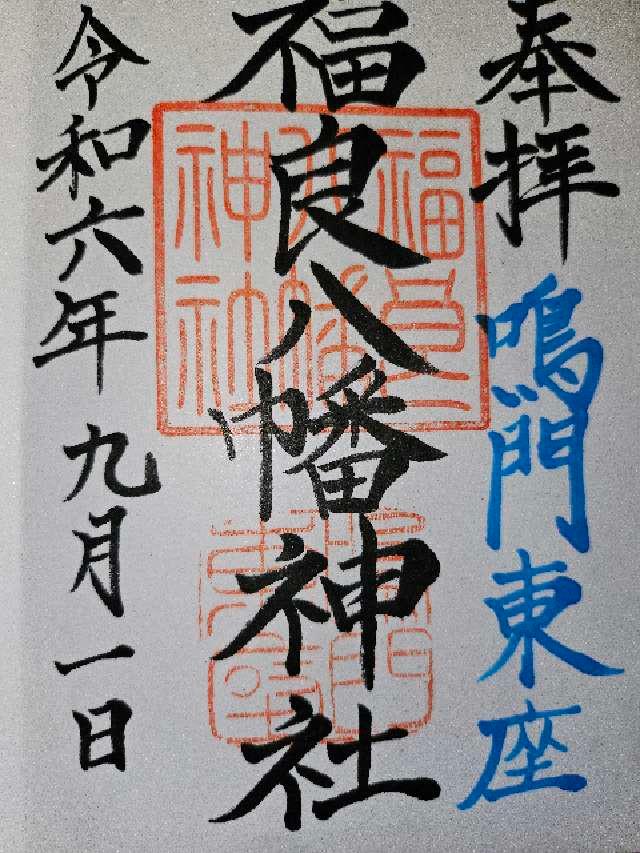 奉拝
鳴門東座
福良八幡神社
福良
八幡
神社
令和六年九月一日